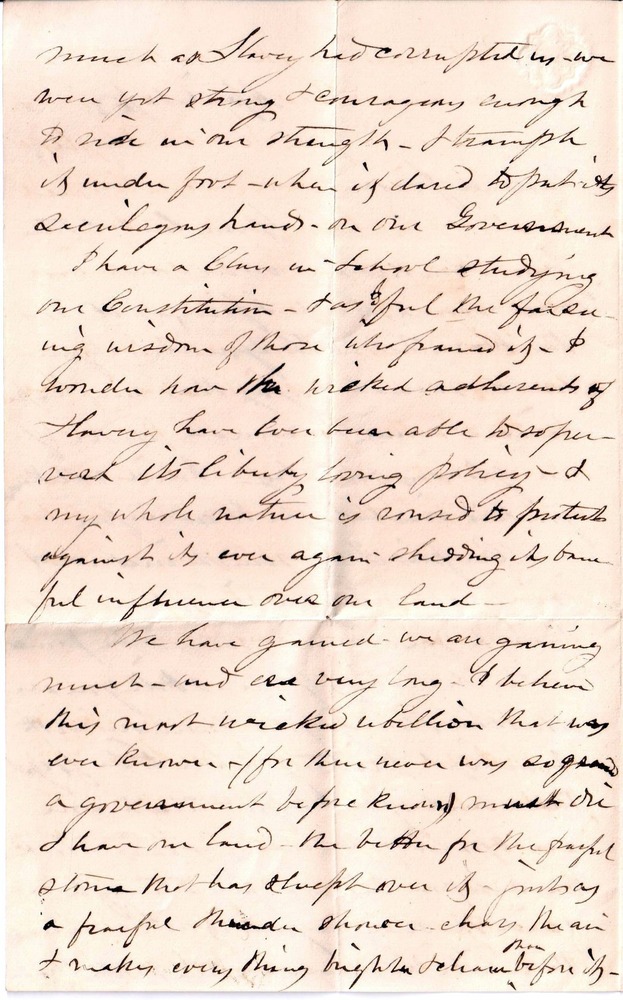 much as Slavery had corrupted us - we
were yet strong & courageous enough
to rise in our strength - & trample
it under foot - when it dared to put its
sacrilegous hands - on our Government
I have a Class in School studying
our Constitution - & as I feel the farsee-
ing wisdom of those who framed it - I
wonder how the wicked adherents of
Slavery have ever been able to so per-
vert its liberty loving policy - &
my whole nature is roused to protest
against its ever again shedding its bane
ful influence over our land -
We have gained - we are gaining
much - and ere very long - I believe
this most wicked rebellion that was
ever known - (for there never was so good
a government before known) must die
& leave our land - the better for the fearful
storm that has swept over it - just as
a fearful thunder shower clears the air
& makes every thing brighter & than before it -